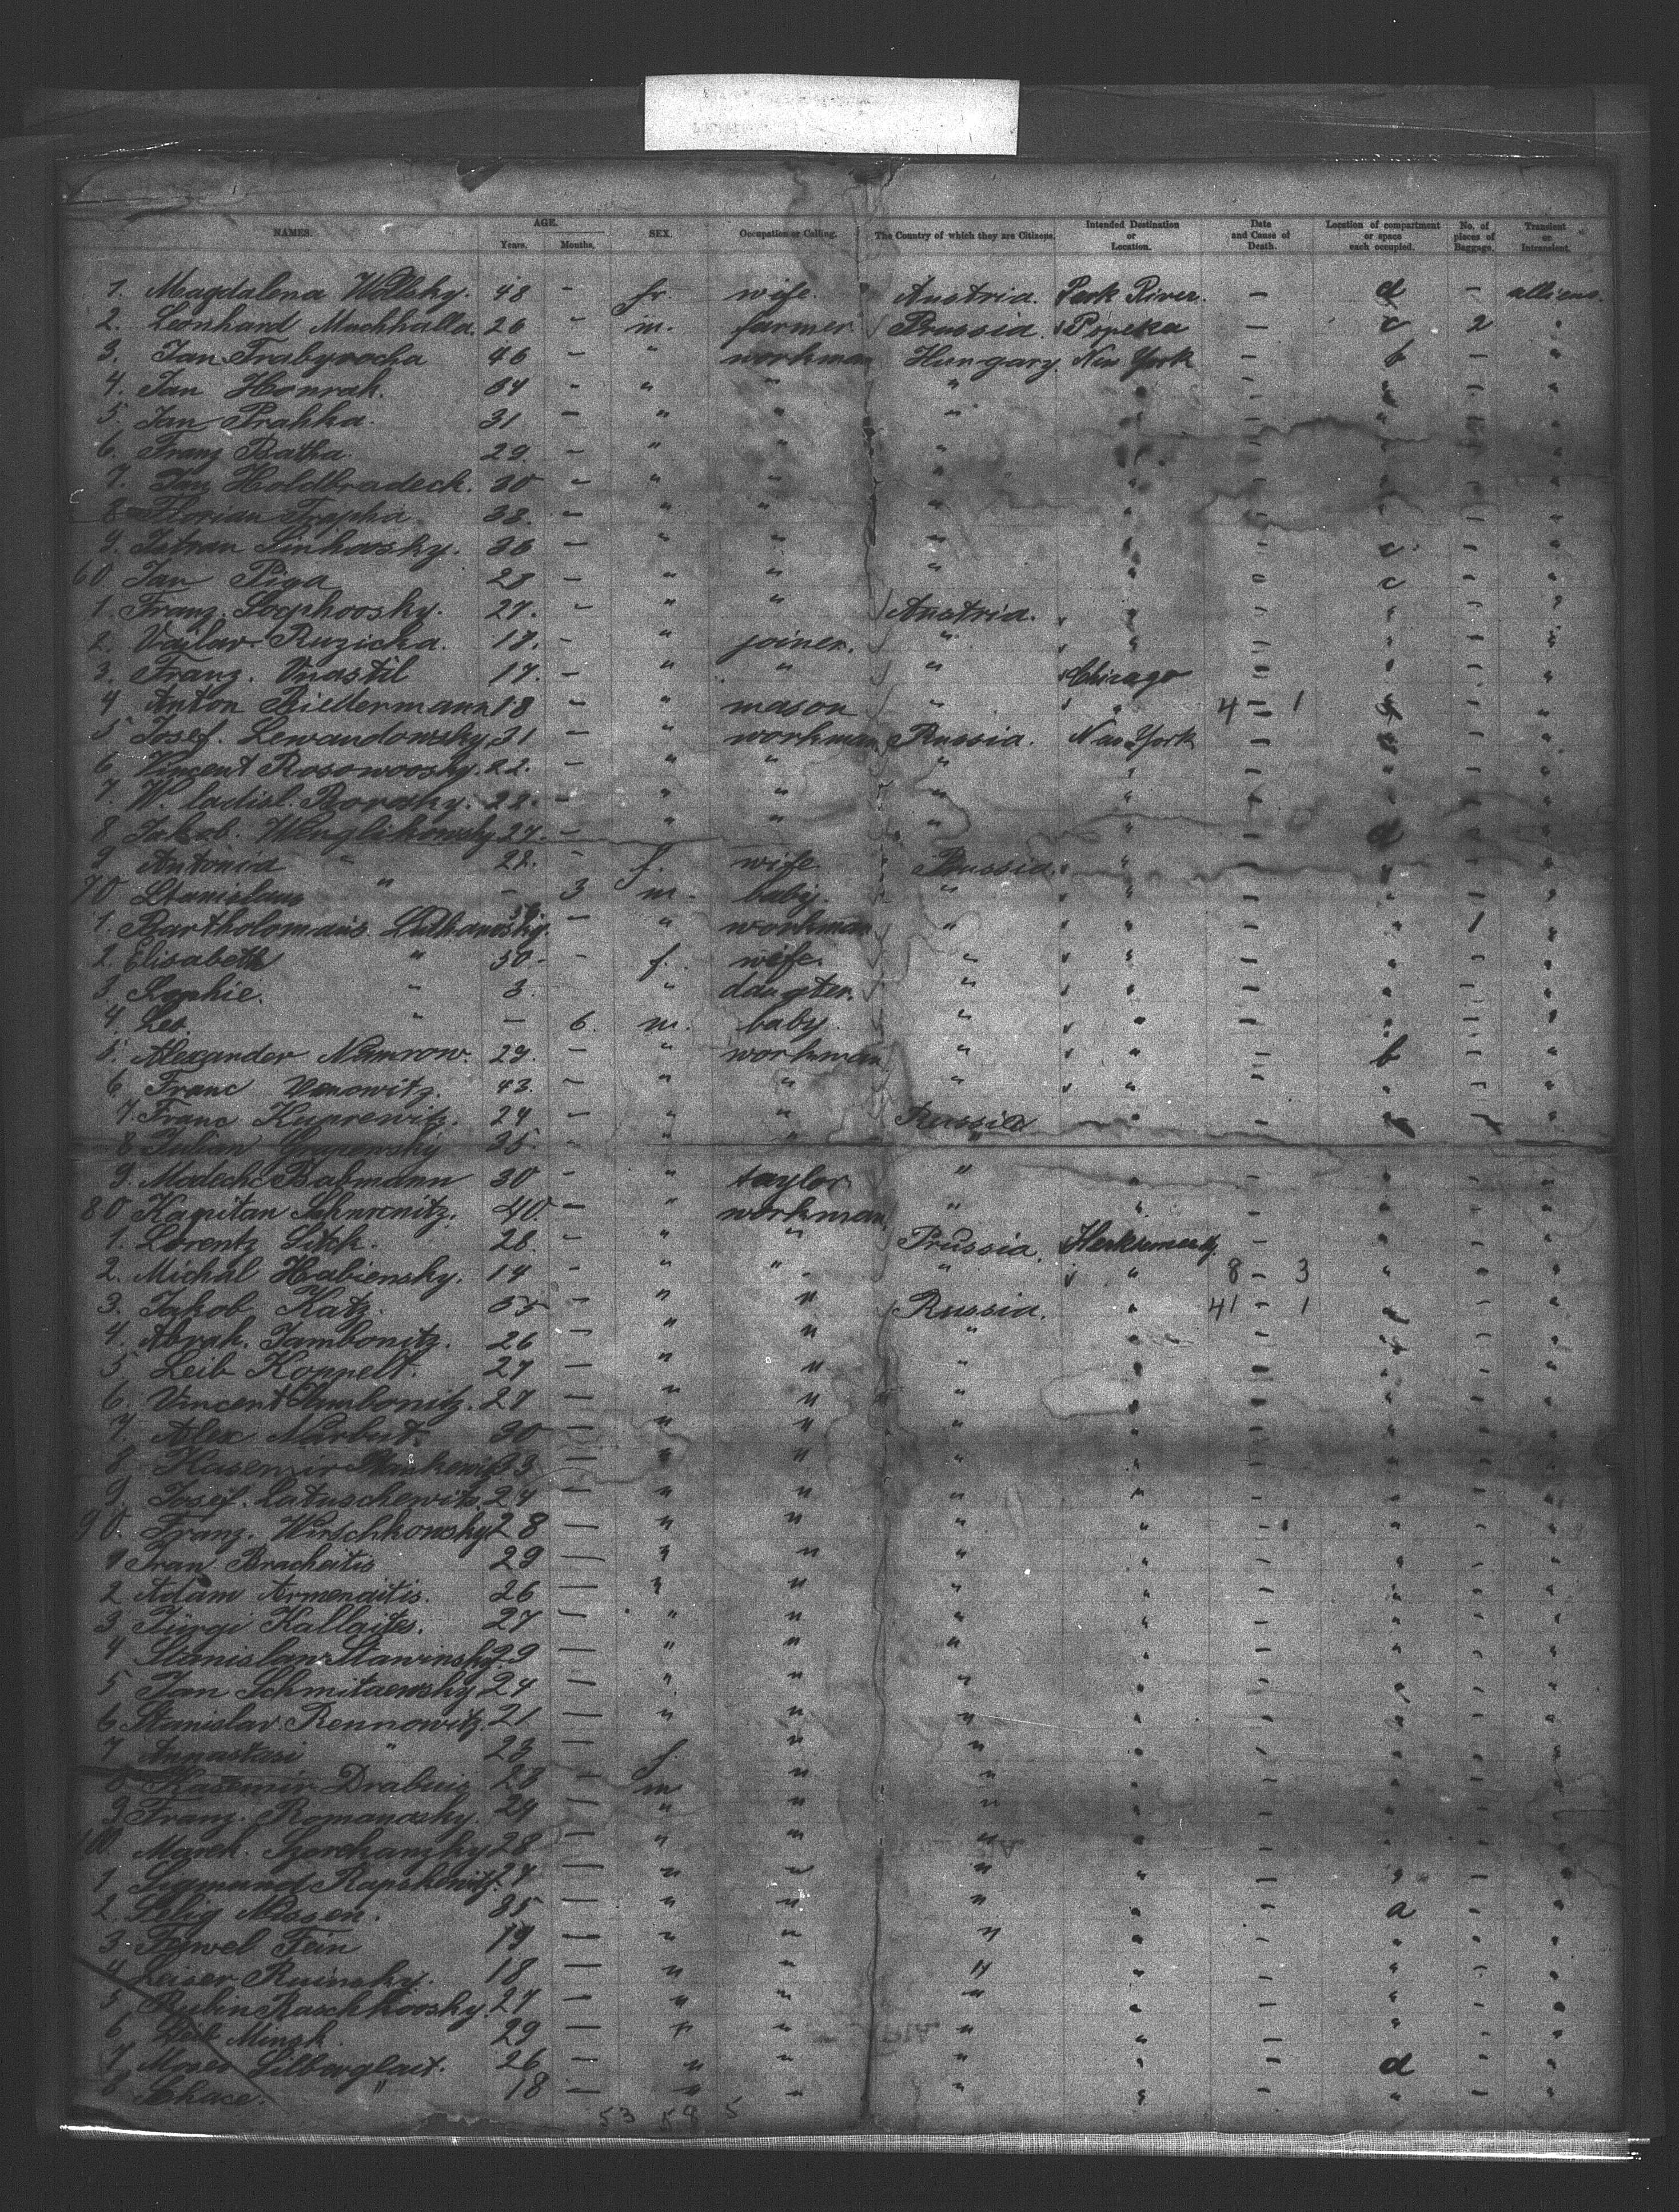 NAMES. AGE. Years. Months. SEX. Occupation or Calling. The Country of which they are Citizens. Intended Destination or Location. Date and Cause of Death. Location of compartment or space each occupied. No. of pieces of Baggage. Transient or Intransient.
1. Magdalena Wollsky. 48 - f. wife. Austria. Park River. - d - alliens.
2. Leonhard Machhalla. 26 - m. farmer Prussia. - c 2 "
3. Jan Trabyrocha 46 - " workman Hungary. New York - b - "
4. Jan Honrak. 34 - " " " " - " - "
5. Jan Prahka. 31 - " " " " - " - "
6. Franz Batha. 29. - " " " " - " - "
7. Jan Holdbradeck. 30 - " " " " - " - "
8 Florian Trepha 33. - " " " " - " - "
9. Istvan Sinkovsky. 36 - " " " " - c - "
60. Jan Piga 23 - " " " " - c - "
1. Franz. 27. - " " Austria. " - " - "
2. Vaslav Ruzicka. 17. - " joiner. " " - " - "
3. Franz. Vnastil 17. - " " " Chicago - " - "
4 Anton Biedermann 18 - " mason " " 4 - 1 - "
5 Josef. Lewandowsky. 31 - " workman Russia. New York - - "
6 Vincent Rosowoosky. 22. - " " " " - " - "
7. W. ladisl. Borosky. 22. - " " " " - " - "
8 Jakob. Wenglikowsky 27. - " " " " - d - "
9 Antonia " 22. - f. wife Prussia. " - " - "
70 Stanislaus " - 3 m. baby. " " - " - "
1. Bartholomaus. - " workman " " - " 1 "
2. Elisabeth " 30. - f. wife. " " - " - "
3 Sophie. " 3. " daugter. " " - " - "
4. Leo. " - 6. m. baby. " " - " - "
5. Alexander Namrow. 29. - " workman " " - b - "
6 Franc Venowitz. 43. - " " " " - " - "
7. Franc Kuprewitz. 24 - " " Russia " - " - "
8 Julian 25. - " " " " - " - "
9. Modech Babmann 30 - " taylor " " - " - "
80 Kapitan Schurenitz. 40 - " workman " " - " - "
1. Lorentz Sitck. 28. - " " Prussia. - " - "
2. Michal Habiensky. 14 - " " " " 8 - 3 " - "
3. Jakob Katz. 55 - " " Russia. " 41 - 1 - "
4. Abrah. Jambonitz. 26 - " " " " - - "
5 Leib Koppelt. 27 - " " " " - " - "
6. Vincent Jambonitz. 27 - " " " " - " - "
7. Alex Narbut. 30 - " " " " - " - "
8 Hasemir 33 - " " " " - " - "
9. Josef. Latuschewitz. 24 - " " " " - " - "
90. Franz. Wirschkowsky 28 - " " " " - " - "
1 Fran Bracheitis 29 - " " " " - " - "
2 Adam Armenaitis. 26 - " " " " - " - "
3 Jürgi Kallaites. 27 - " " " " - " - "
4 Stanislaw Stawinsky. 29 - " " " " - " - "
5 Jan Schmitaewsky 24 - " " " " - " - "
6 Stanislav. Rennowitz. 21 - " " " " - " - "
7 Annastasi " 23 - f. " " " - " - "
8 Kasemir Drabuis 23 - m " " " - " - "
9 Franz. Romanosky. 24 - " " " " - " - "
100 Marek. 28 - " " " " - " - "
1 Sigmund Rapskewitz. 27 - " " " " - " - "
2 Selig Nissen. 35 - " " " " - a - "
3 Feiwel Fein 19 - " " " " - " - "
4 Leiser Ruinsky. 18 - " " " " - " - "
5 Rubin Raschkovsky. 27 - " " " " - " - "
6 Leib Minsk. 29 - " " " " - " - "
7 Moses Silberglait. 26 - " " " " - d - "
8 Schase. " 18 - " " " " - " - "
53 59 5